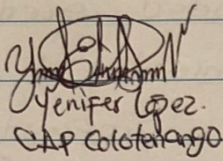 Yenifer López.
CAP Colotenango